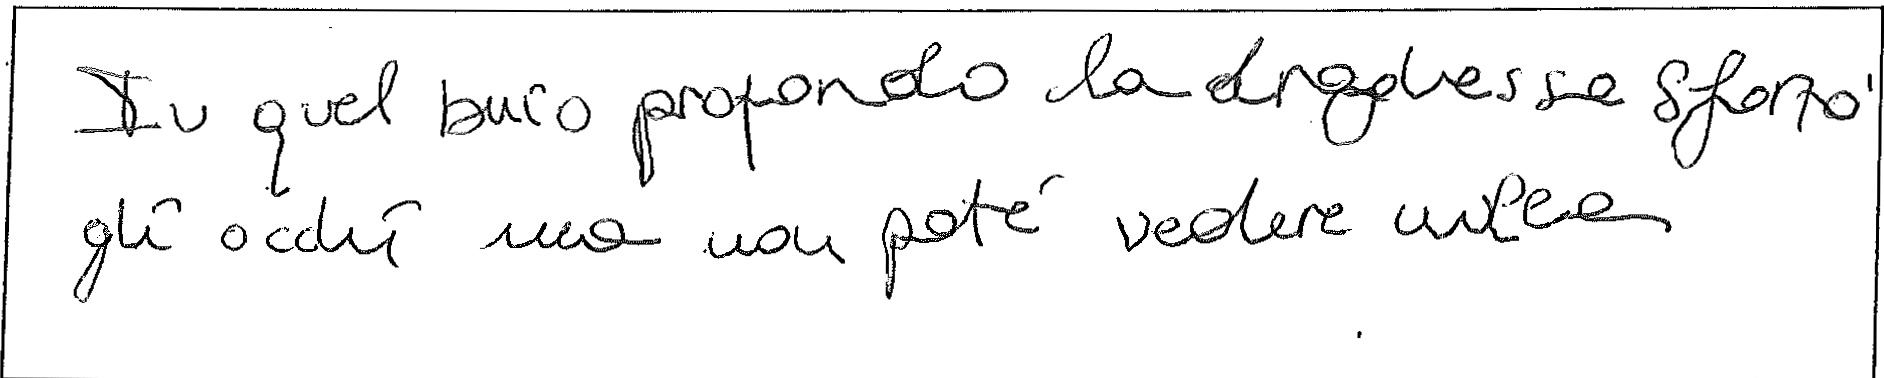 In quel buio profondo la draghessa sforzo'
gli occhi ma non poté vedere nulla